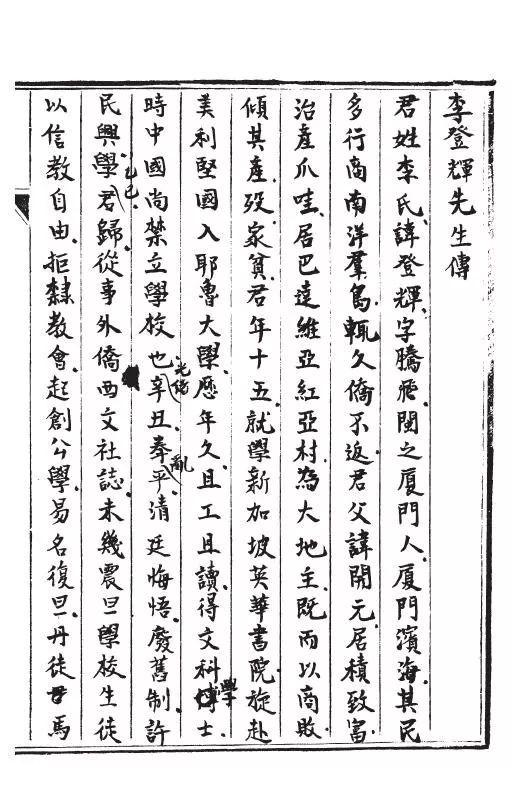 李登輝先生傳
君姓李氏諱登輝字騰飛閩之廈門人廈門濱海其民
多行商南洋羣島輒久僑不返君父諱開元居積致富
治產爪哇居巴達維亞紅亞村為大地主既而以商敗
傾其產歿家貧君年十五就學新加坡英華書院旋赴
美利堅國入耶魯大學歷年久且工且讀得文科學士
時中國尚禁立學校也光緒辛丑拳亂平清廷悔悟廢舊制許
民興學乙巳君歸從事外僑西文社誌未幾震旦學校生徒
以信教自由拒隸教會起創公學易名復旦丹徒馬